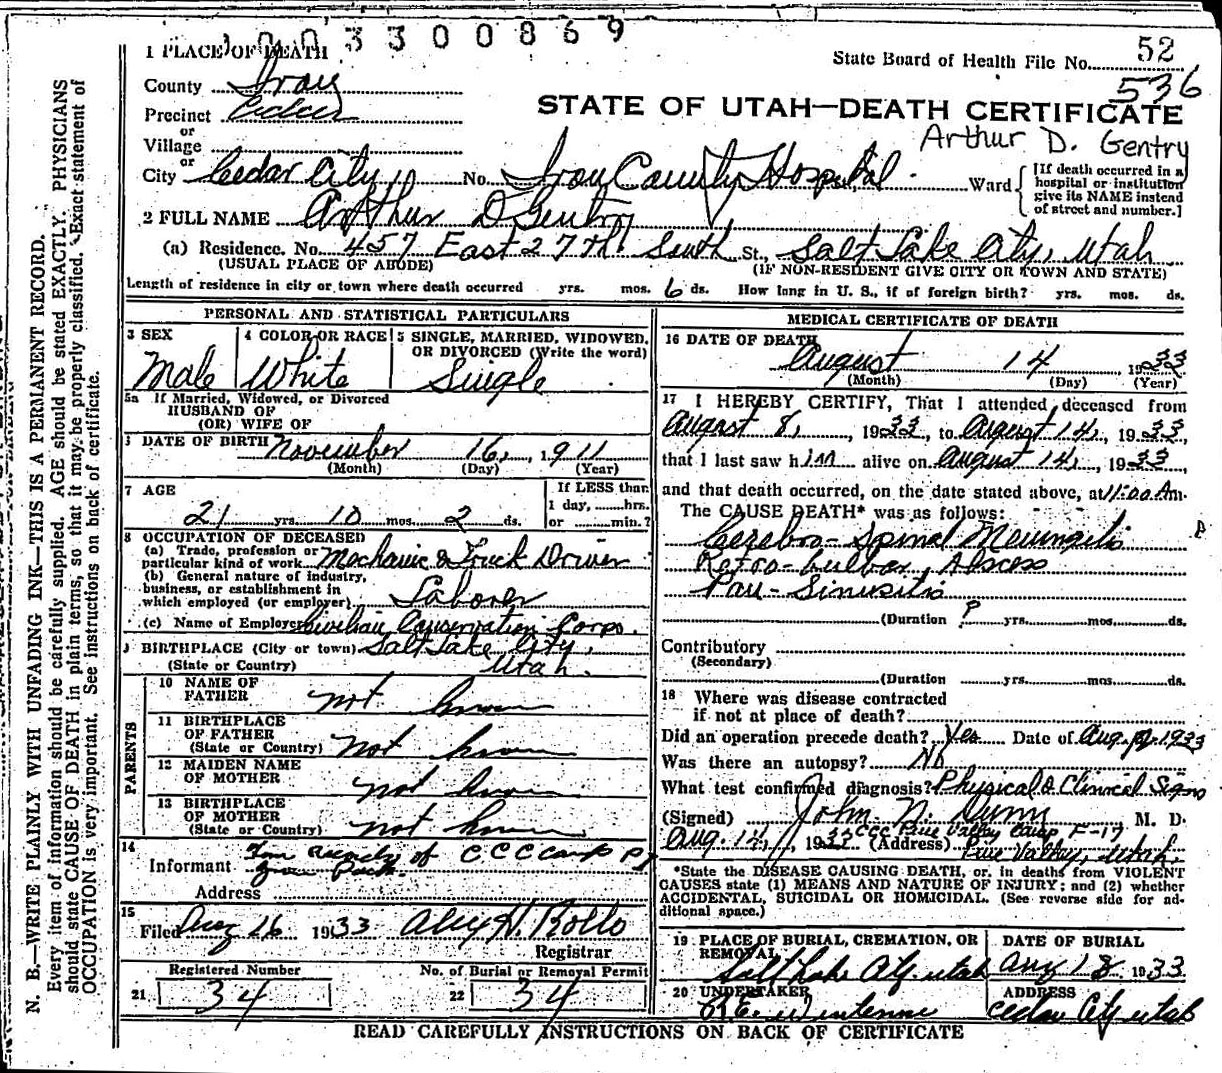 1003300869
1 PLACE OF DEATH
State Board of Health File No. 52
536
County Iron
STATE OF UTAH—DEATH CERTIFICATE
Precinct Cedar
or
Village
Arthur D. Gentry
or
City Cedar City No. Iron County Hospital. Ward
[If death occurred in a hospital or institution give its NAME instead of street and number.]
2 FULL NAME Arthur D Gentry
(a) Residence. No. 457 East 27th South St., Salt Lake City, Utah
(USUAL PLACE OF ABODE) (IF NON-RESIDENT GIVE CITY OR TOWN AND STATE)
Length of residence in city or town where death occurred yrs. mos. 6 ds. How long in U. S., if of foreign birth? yrs. mos. ds.
PERSONAL AND STATISTICAL PARTICULARS
3 SEX 4 COLOR OR RACE 5 SINGLE, MARRIED, WIDOWED,
OR DIVORCED (Write the word)
Male White Single
5a If Married, Widowed, or Divorced
HUSBAND OF
(OR) WIFE OF
DATE OF BIRTH November 16, 1911
(Month) (Day) (Year)
7 AGE If LESS than
1 day, hrs.
21 yrs. 10 mos. 2 ds. or min.?
8 OCCUPATION OF DECEASED
(a) Trade, profession or
particular kind of work Mechanic & Truck Driver
(b) General nature of industry,
business, or establishment in
which employed (or employer) Laborer
(c) Name of Employer Civilian Conservation Corps.
BIRTHPLACE (City or town) Salt Lake City,
(State or Country) Utah.
PARENTS
10 NAME OF
FATHER not known
11 BIRTHPLACE
OF FATHER
(State or Country) not known
12 MAIDEN NAME
OF MOTHER not known
13 BIRTHPLACE
OF MOTHER
(State or Country) not known
14
Informant of CCC Camp
Address
15
Filed Aug 16 1933 Alex H. Rollo
Registrar
Registered Number No. of Burial or Removal Permit
21 34 22 34
MEDICAL CERTIFICATE OF DEATH
16 DATE OF DEATH
August 14 1933
(Month) (Day) (Year)
17 I HEREBY CERTIFY, That I attended deceased from
August 8, 1933, to August 14, 1933,
that I last saw him alive on August 14, 1933,
and that death occurred, on the date stated above, at 11:00 Am.
The CAUSE DEATH* was as follows:
Cerebro-Spinal Meningitis
Retro-bulbar Abscess
Pan-Sinusitis
(Duration ? yrs. mos. ds.
Contributory
(Secondary)
(Duration yrs. mos. ds.
18 Where was disease contracted
if not at place of death?
Did an operation precede death? Yes Date of Aug. 1933
Was there an autopsy? No
What test confirmed diagnosis? Physical & Clinical Signs
(Signed) John N. Dunn M. D.
Aug. 14, 1933 (Address) CCC Pine Valley Camp F-17
Pine Valley, Utah.
*State the DISEASE CAUSING DEATH, or, in deaths from VIOLENT
CAUSES state (1) MEANS AND NATURE OF INJURY; and (2) whether
ACCIDENTAL, SUICIDAL OR HOMICIDAL. (See reverse side for ad-
ditional space.)
19 PLACE OF BURIAL, CREMATION, OR DATE OF BURIAL
REMOVAL
Salt Lake City Utah Aug 18 1933
20 UNDERTAKER ADDRESS
Cedar City Utah
READ CAREFULLY INSTRUCTIONS ON BACK OF CERTIFICATE
N. B.—WRITE PLAINLY WITH UNFADING INK—THIS IS A PERMANENT RECORD.
Every item of information should be carefully supplied. AGE should be stated EXACTLY. PHYSICIANS
should state CAUSE OF DEATH in plain terms, so that it may be properly classified. Exact statement of
OCCUPATION is very important. See instructions on back of certificate.